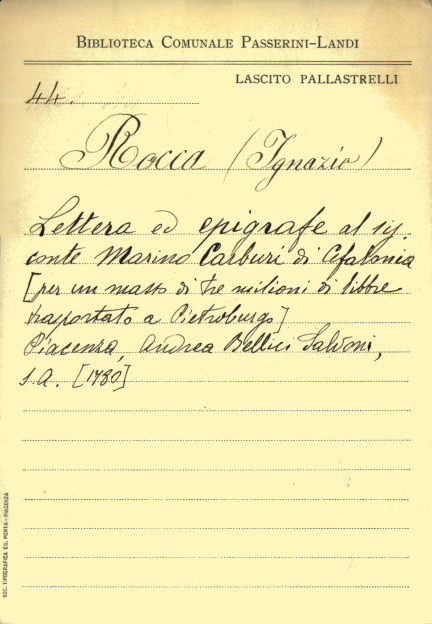 BIBLIOTECA COMUNALE PASSERINI-LANDI
LASCITO PALLASTRELLI
44.
Rocca (Ignazio)
Lettera ed epigrafe al sig
conte Marino Carburi di Cefalonia
[per un masso di tre milioni di libbre
trasportato a Pietroburgo]
Piacenza, Andrea Bellici Salvoni,
s.a. [1780]
SOC. TIPOGRAFICA ED. PORTA - PIACENZA